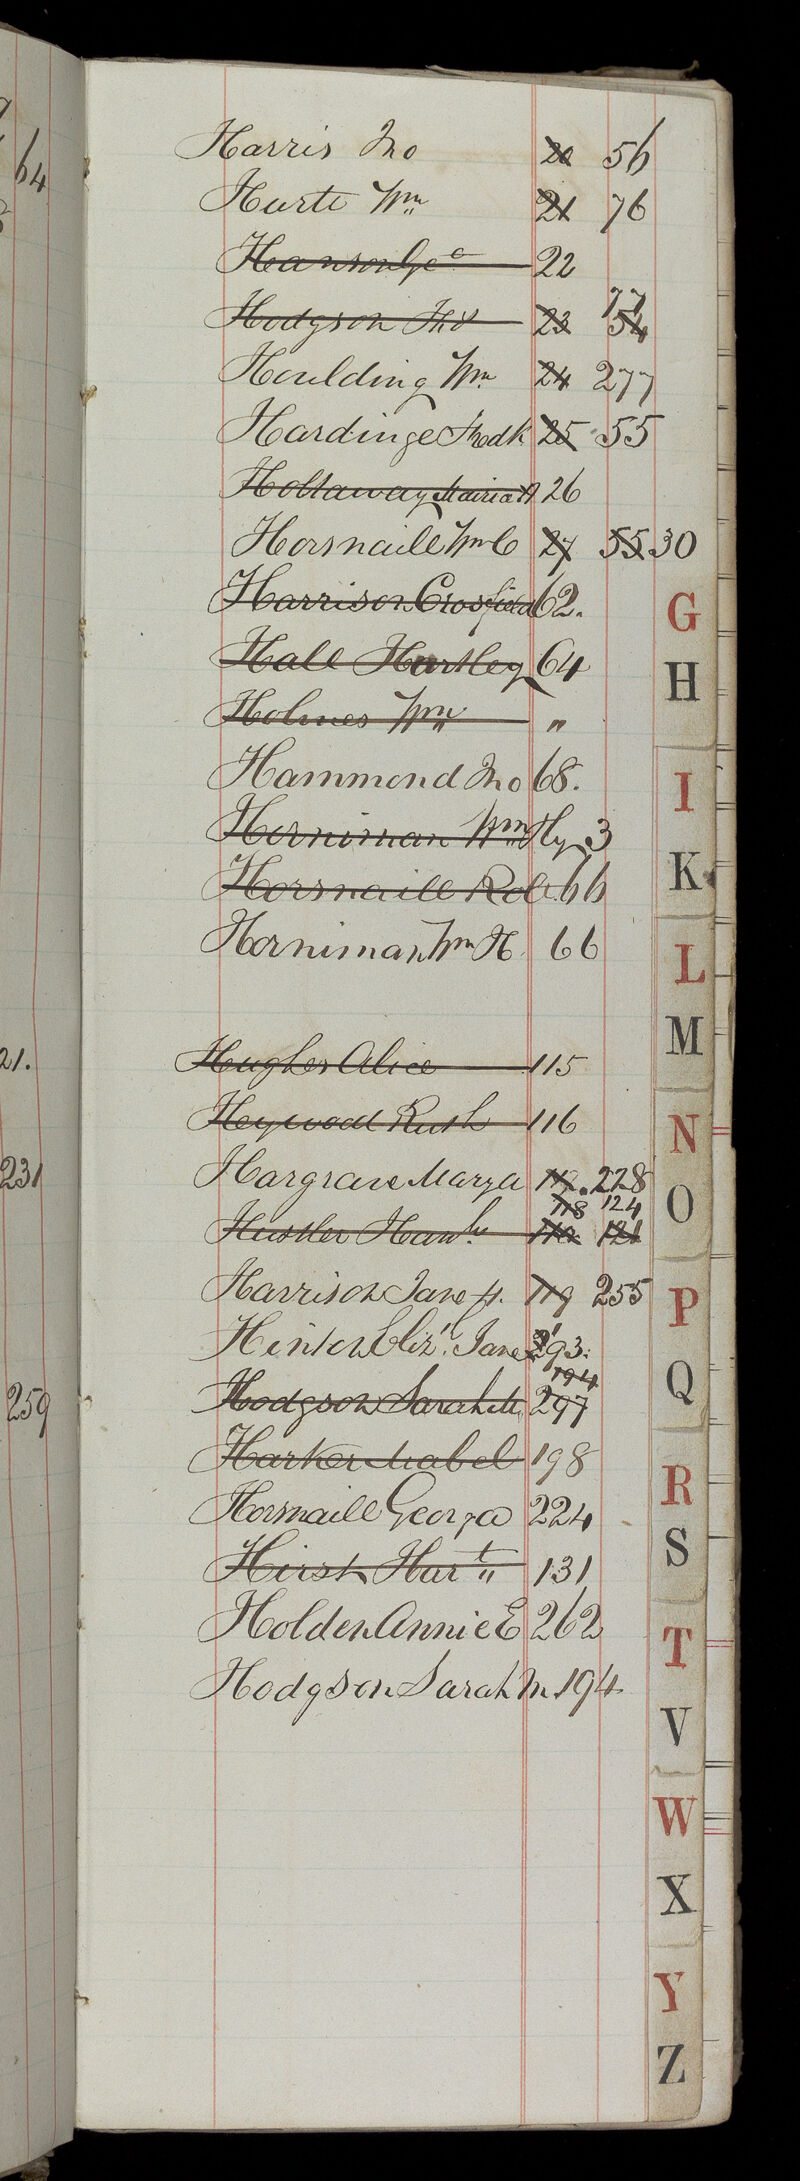 64
21.
231
259
Harris Jno 20 56
Hurte Wm 21 76
Hanson Geo 22
77
Hodgson Thos 23 54
Houlding Wm 24 277
Hardinge Fredk 25 55
Hollaway Maria A 26
Horsnaill Wm C 27 55 30
Harrison Crosfield 62.
Hall Hartley 64
Holmes Wm "
Hammond Jno 68.
Horniman Wm Hy 3
Horsnaill Robt. 66
Horniman Wm H. 66
Hughes Alice 115
Heywood Ruth 116
Hargrave Marya 228
118 124
Hustler Hanh 121
Harrison Jane 119 255
Hinton Elizth Jane 293.
194
Hodgson Sarah 297
Harker Mabel 198
Horsnaill Georga 224
Hirst Hart 131
Holden Annie E 262
Hodgson Sarah M. 194
G
H
I
K
L
M
N
O
P
Q
R
S
T
V
W
X
Y
Z